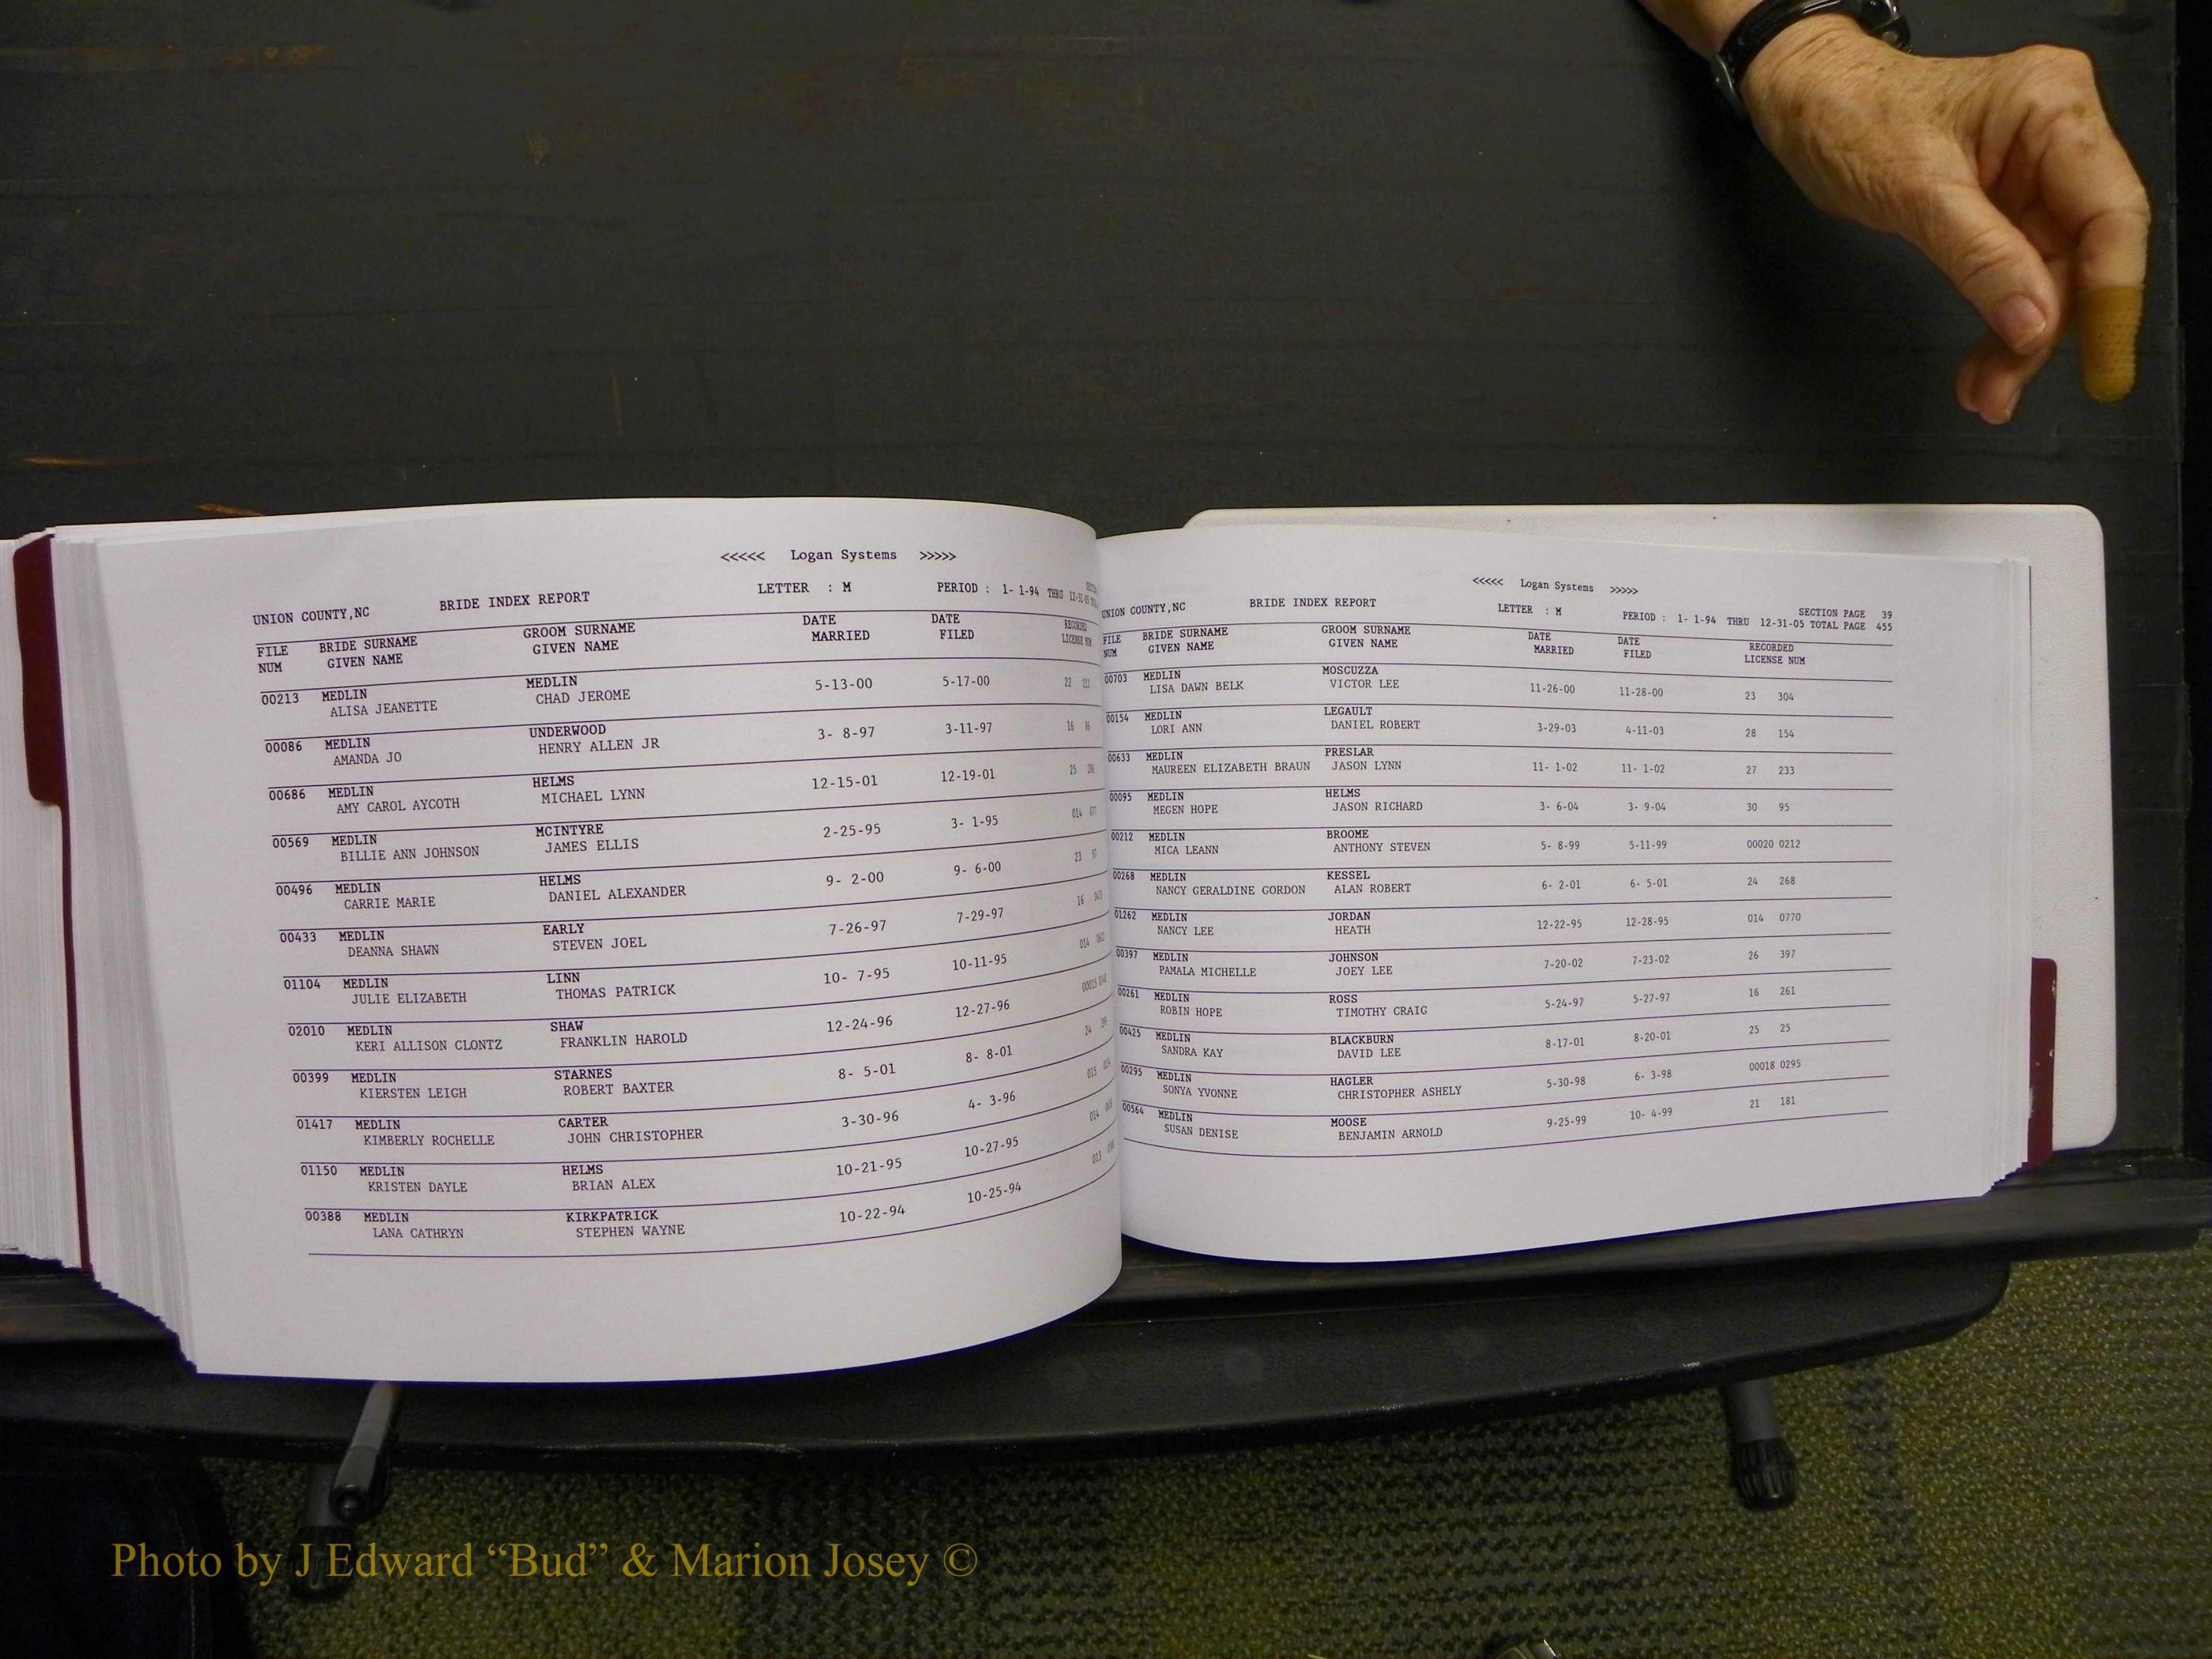 <<<<< Logan Systems >>>>>
UNION COUNTY,NC BRIDE INDEX REPORT LETTER : M PERIOD : 1- 1-94 THRU
FILE NUM BRIDE SURNAME GIVEN NAME GROOM SURNAME GIVEN NAME DATE MARRIED DATE FILED RECORDED LICENSE NUM
00213 MEDLIN MEDLIN 5-13-00 5-17-00 22
ALISA JEANETTE CHAD JEROME
00086 MEDLIN UNDERWOOD 3- 8-97 3-11-97 16
AMANDA JO HENRY ALLEN JR
00686 MEDLIN HELMS 12-15-01 12-19-01 25
AMY CAROL AYCOTH MICHAEL LYNN
00569 MEDLIN MCINTYRE 2-25-95 3- 1-95 014
BILLIE ANN JOHNSON JAMES ELLIS
00496 MEDLIN HELMS 9- 2-00 9- 6-00 23
CARRIE MARIE DANIEL ALEXANDER
00433 MEDLIN EARLY 7-26-97 7-29-97 16
DEANNA SHAWN STEVEN JOEL
01104 MEDLIN LINN 10- 7-95 10-11-95 014
JULIE ELIZABETH THOMAS PATRICK
02010 MEDLIN SHAW 12-24-96 12-27-96
KERI ALLISON CLONTZ FRANKLIN HAROLD
00399 MEDLIN STARNES 8- 5-01 8- 8-01 24
KIERSTEN LEIGH ROBERT BAXTER
01417 MEDLIN CARTER 3-30-96 4- 3-96 015
KIMBERLY ROCHELLE JOHN CHRISTOPHER
01150 MEDLIN HELMS 10-21-95 10-27-95 014
KRISTEN DAYLE BRIAN ALEX
00388 MEDLIN KIRKPATRICK 10-22-94 10-25-94 013
LANA CATHRYN STEPHEN WAYNE
<<<<< Logan Systems >>>>>
SECTION PAGE 39
UNION COUNTY,NC BRIDE INDEX REPORT LETTER : M PERIOD : 1- 1-94 THRU 12-31-05 TOTAL PAGE 455
FILE BRIDE SURNAME GROOM SURNAME DATE DATE RECORDED
NUM GIVEN NAME GIVEN NAME MARRIED FILED LICENSE NUM
00703 MEDLIN MOSCUZZA 11-26-00 11-28-00 23 304
LISA DAWN BELK VICTOR LEE
00154 MEDLIN LEGAULT 3-29-03 4-11-03 28 154
LORI ANN DANIEL ROBERT
00633 MEDLIN PRESLAR 11- 1-02 11- 1-02 27 233
MAUREEN ELIZABETH BRAUN JASON LYNN
00095 MEDLIN HELMS 3- 6-04 3- 9-04 30 95
MEGEN HOPE JASON RICHARD
00212 MEDLIN BROOME 5- 8-99 5-11-99 00020 0212
MICA LEANN ANTHONY STEVEN
00268 MEDLIN KESSEL 6- 2-01 6- 5-01 24 268
NANCY GERALDINE GORDON ALAN ROBERT
01262 MEDLIN JORDAN 12-22-95 12-28-95 014 0770
NANCY LEE HEATH
00397 MEDLIN JOHNSON 7-20-02 7-23-02 26 397
PAMALA MICHELLE JOEY LEE
00261 MEDLIN ROSS 5-24-97 5-27-97 16 261
ROBIN HOPE TIMOTHY CRAIG
00425 MEDLIN BLACKBURN 8-17-01 8-20-01 25 25
SANDRA KAY DAVID LEE
00295 MEDLIN HAGLER 5-30-98 6- 3-98 00018 0295
SONYA YVONNE CHRISTOPHER ASHELY
00564 MEDLIN MOOSE 9-25-99 10- 4-99 21 181
SUSAN DENISE BENJAMIN ARNOLD
Photo by J Edward “Bud” & Marion Josey ©